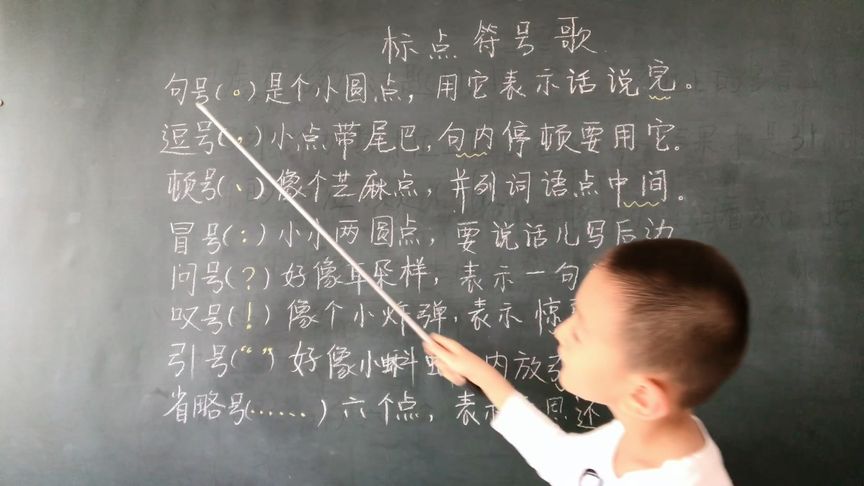 标点符号歌
句号(。)是个小圆点，用它表示话说完。
逗号(，)小点带尾巴，句内停顿要用它。
顿号(、)像个芝麻点，并列词语点中间。
冒号(：)小小两圆点，要说话儿写后边
问号(？)好像耳朵样，表示一句
叹号(！)像个小炸弹，表示惊
引号(“ ”)好像小蝌 内放引
省略号(……)六个点，表示 思还